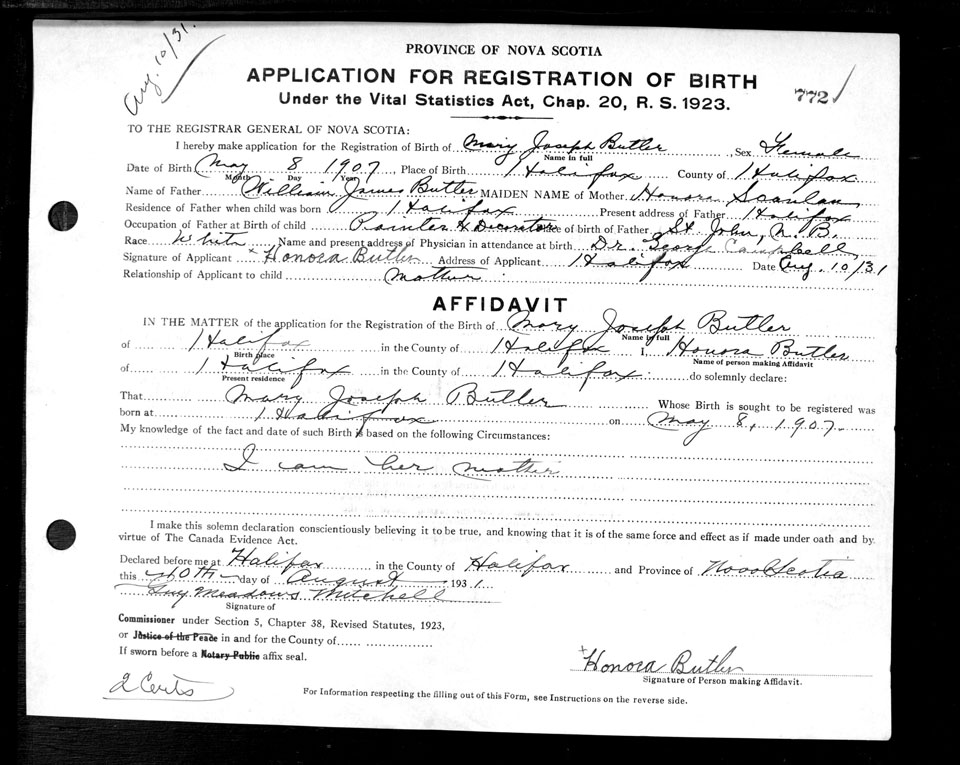 Aug. 10/31.
PROVINCE OF NOVA SCOTIA
APPLICATION FOR REGISTRATION OF BIRTH
772
Under the Vital Statistics Act, Chap. 20, R. S. 1923.
TO THE REGISTRAR GENERAL OF NOVA SCOTIA:
I hereby make application for the Registration of Birth of Mary Joseph Butler, Sex Female
Name in full
Date of Birth May 8 1907, Place of Birth Halifax County of Halifax
Month Day Year
Name of Father William James Butler MAIDEN NAME of Mother Honora Scanlan
Residence of Father when child was born Halifax Present address of Father Halifax
Occupation of Father at Birth of child Painter & Decorator Place of birth of Father St. John, N. B.
Race White Name and present address of Physician in attendance at birth Dr. George Campbell
Signature of Applicant Honora Butler Address of Applicant Halifax Date Aug. 10/31
Relationship of Applicant to child mother
AFFIDAVIT
IN THE MATTER of the application for the Registration of the Birth of Mary Joseph Butler
Name in full
of Halifax in the County of Halifax I, Honora Butler
Birth place Name of person making Affidavit
of Halifax in the County of Halifax do solemnly declare:
Present residence
That Mary Joseph Butler Whose Birth is sought to be registered was
born at Halifax on May 8, 1907.
My knowledge of the fact and date of such Birth is based on the following Circumstances:
I am her mother
I make this solemn declaration conscientiously believing it to be true, and knowing that it is of the same force and effect as if made under oath and by
virtue of The Canada Evidence Act.
Declared before me at Halifax in the County of Halifax and Province of Nova Scotia
this 10th day of August 1931
Guy Meadows Mitchell
Signature of
Commissioner under Section 5, Chapter 38, Revised Statutes, 1923,
or Justice of the Peace in and for the County of
If sworn before a Notary Public affix seal.
Honora Butler
Signature of Person making Affidavit.
2 Certs
For Information respecting the filling out of this Form, see Instructions on the reverse side.